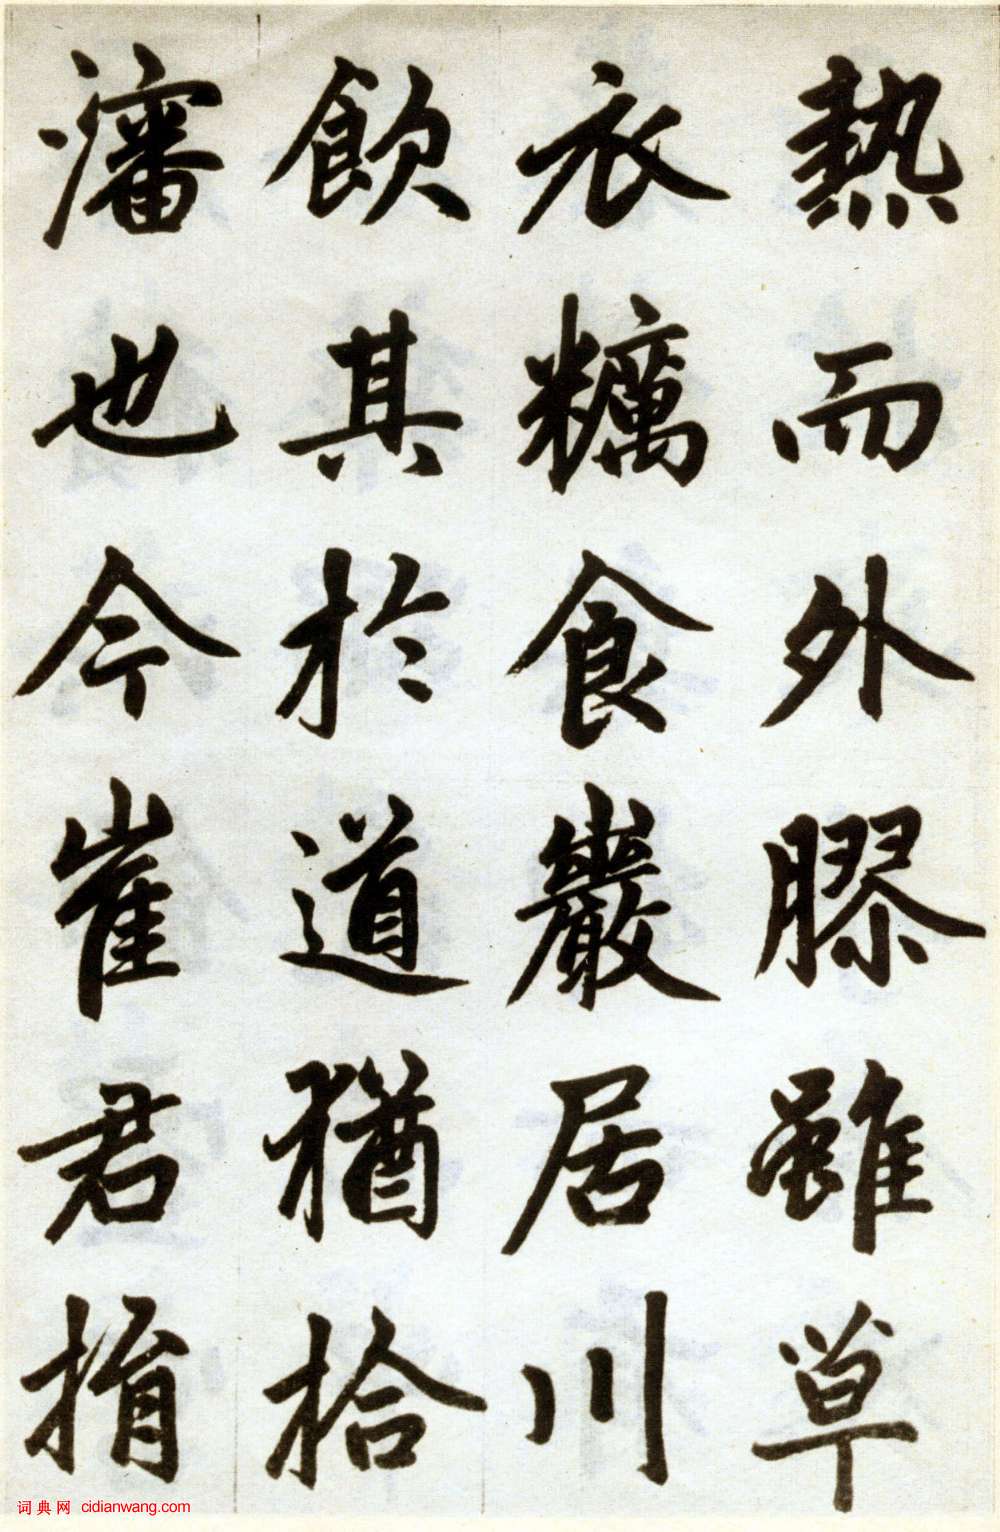 熱而外膠雖草
衣糲食巖居川
飲其於道猶拾
瀋也今崔君捐
词典网 cidianwang.com